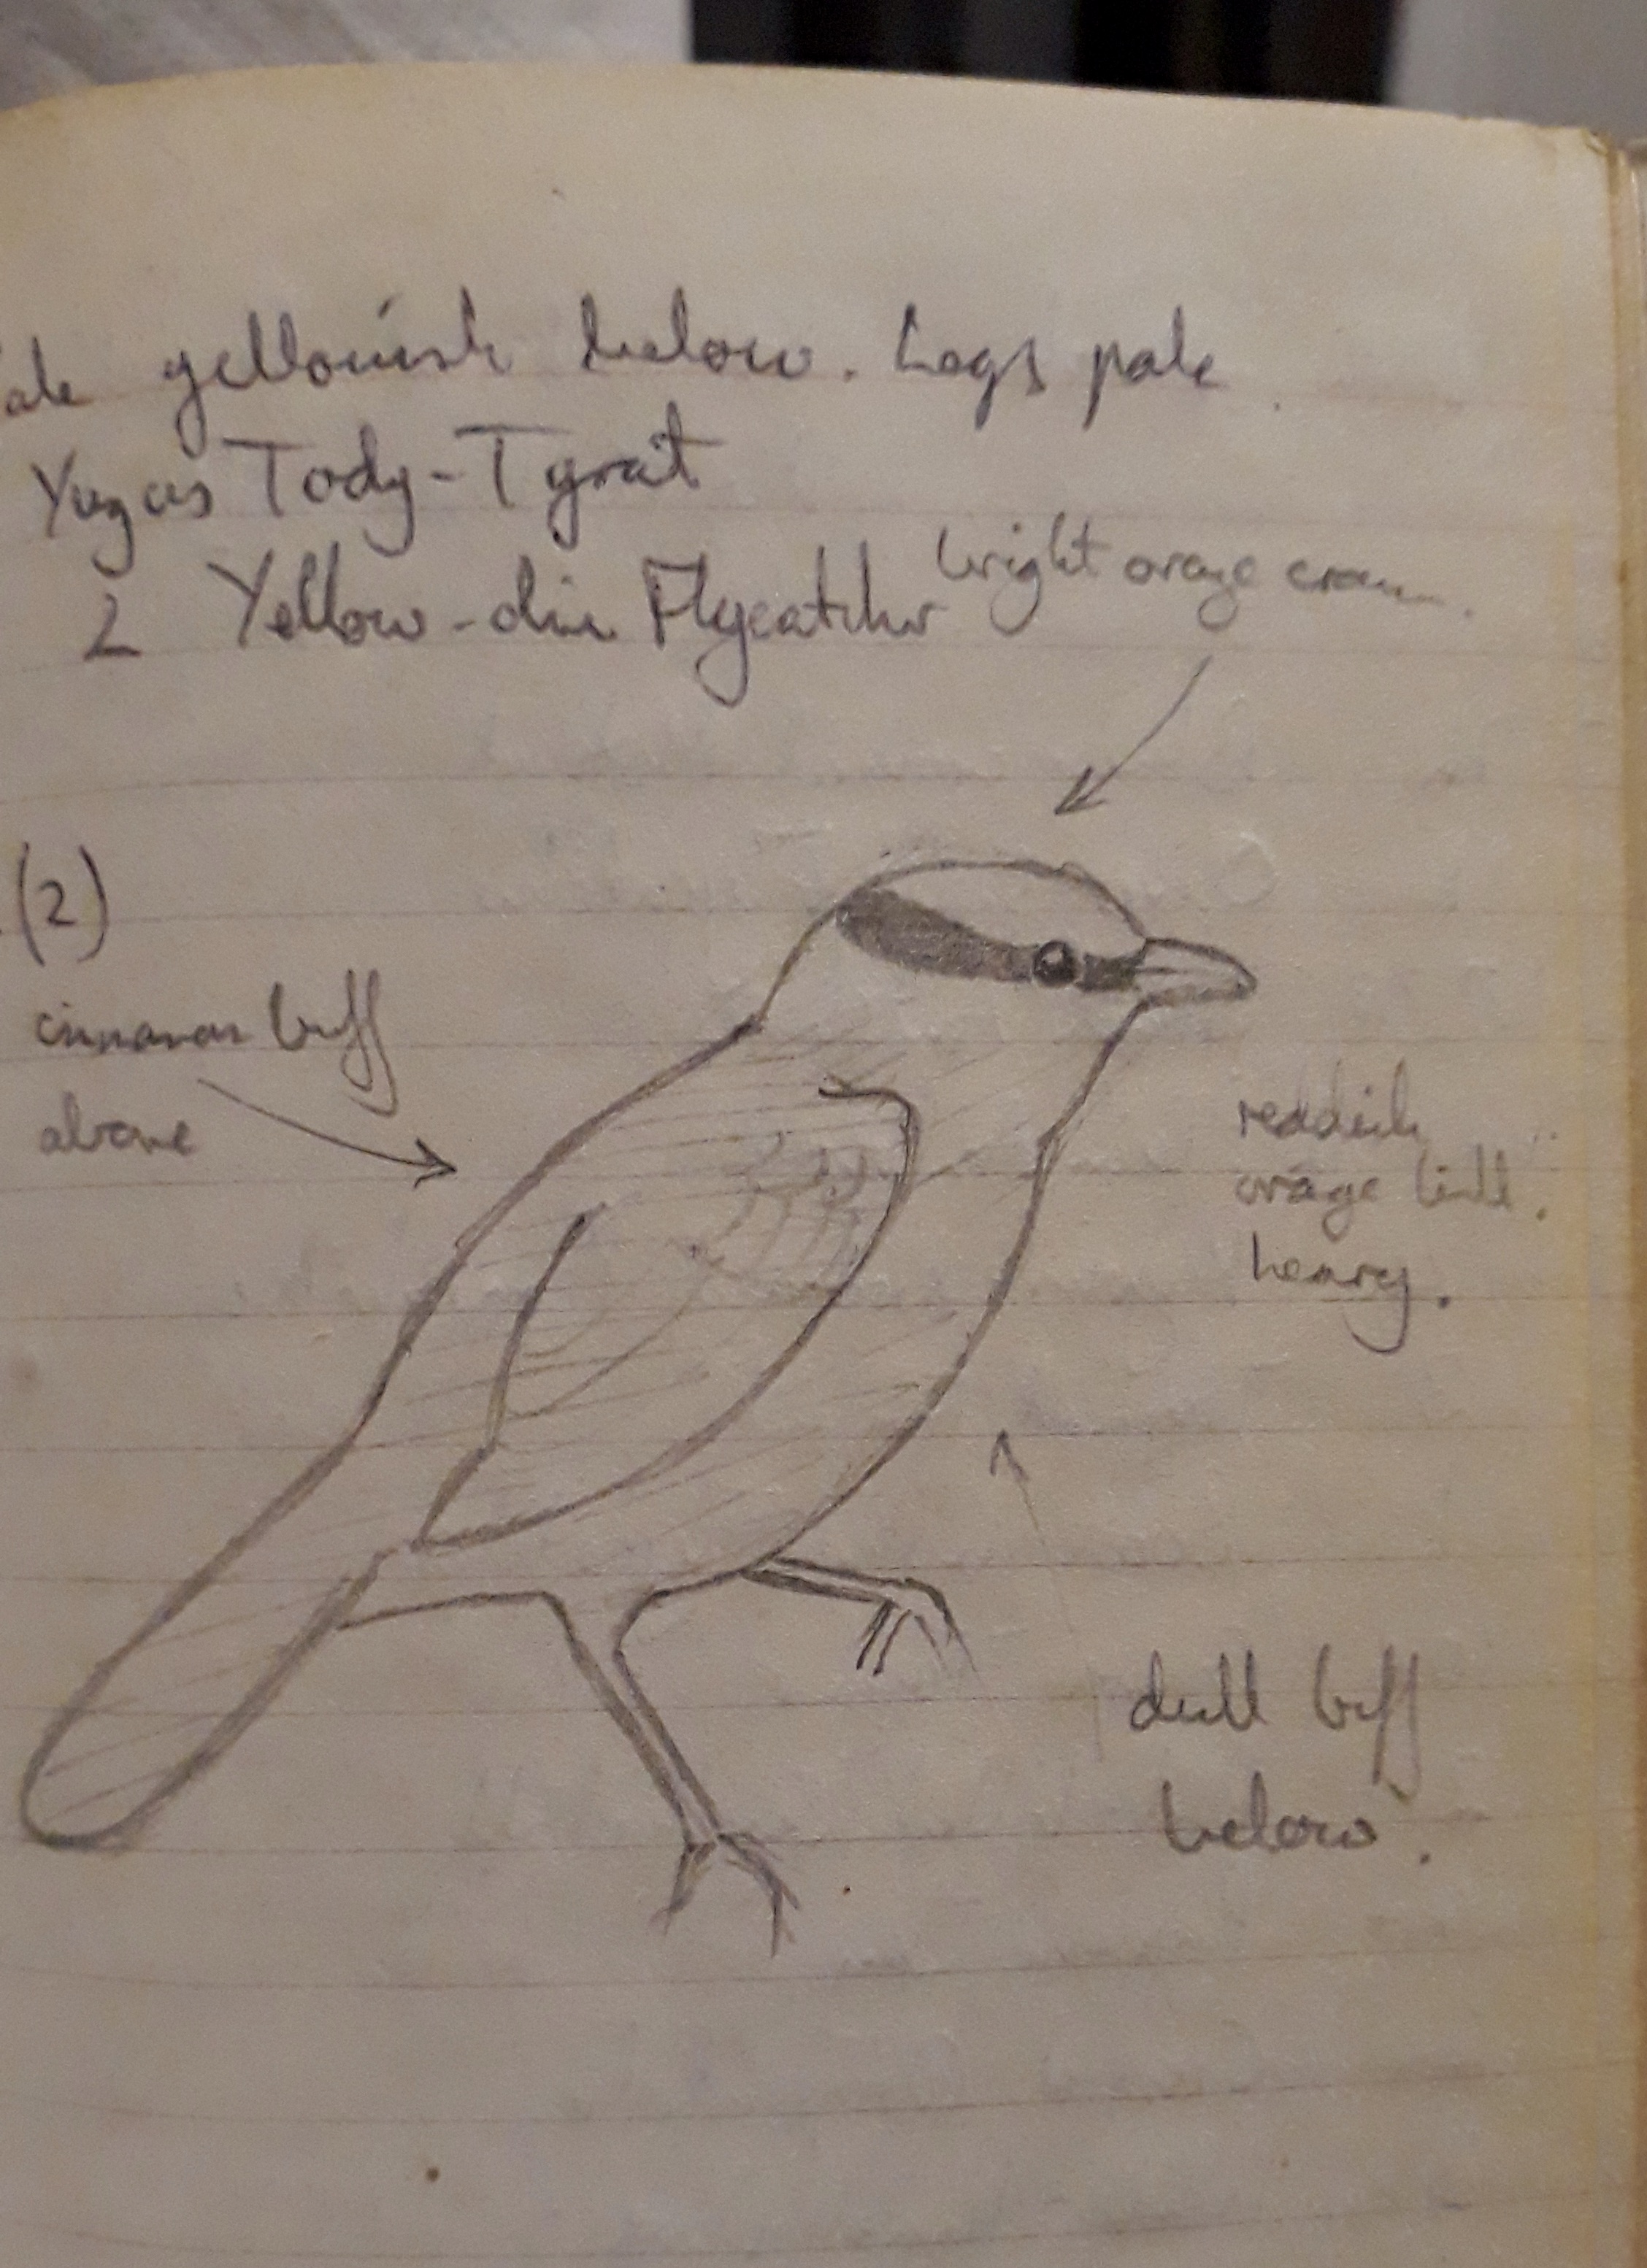 ale yellowish below. Legs pale
Yugas Tody-Tyrat
2 Yellow-olive Flycatcher
bright orange crown.
(2)
cinnamon buff
above
reddish
orange bill.
heavy.
dull buff
below.